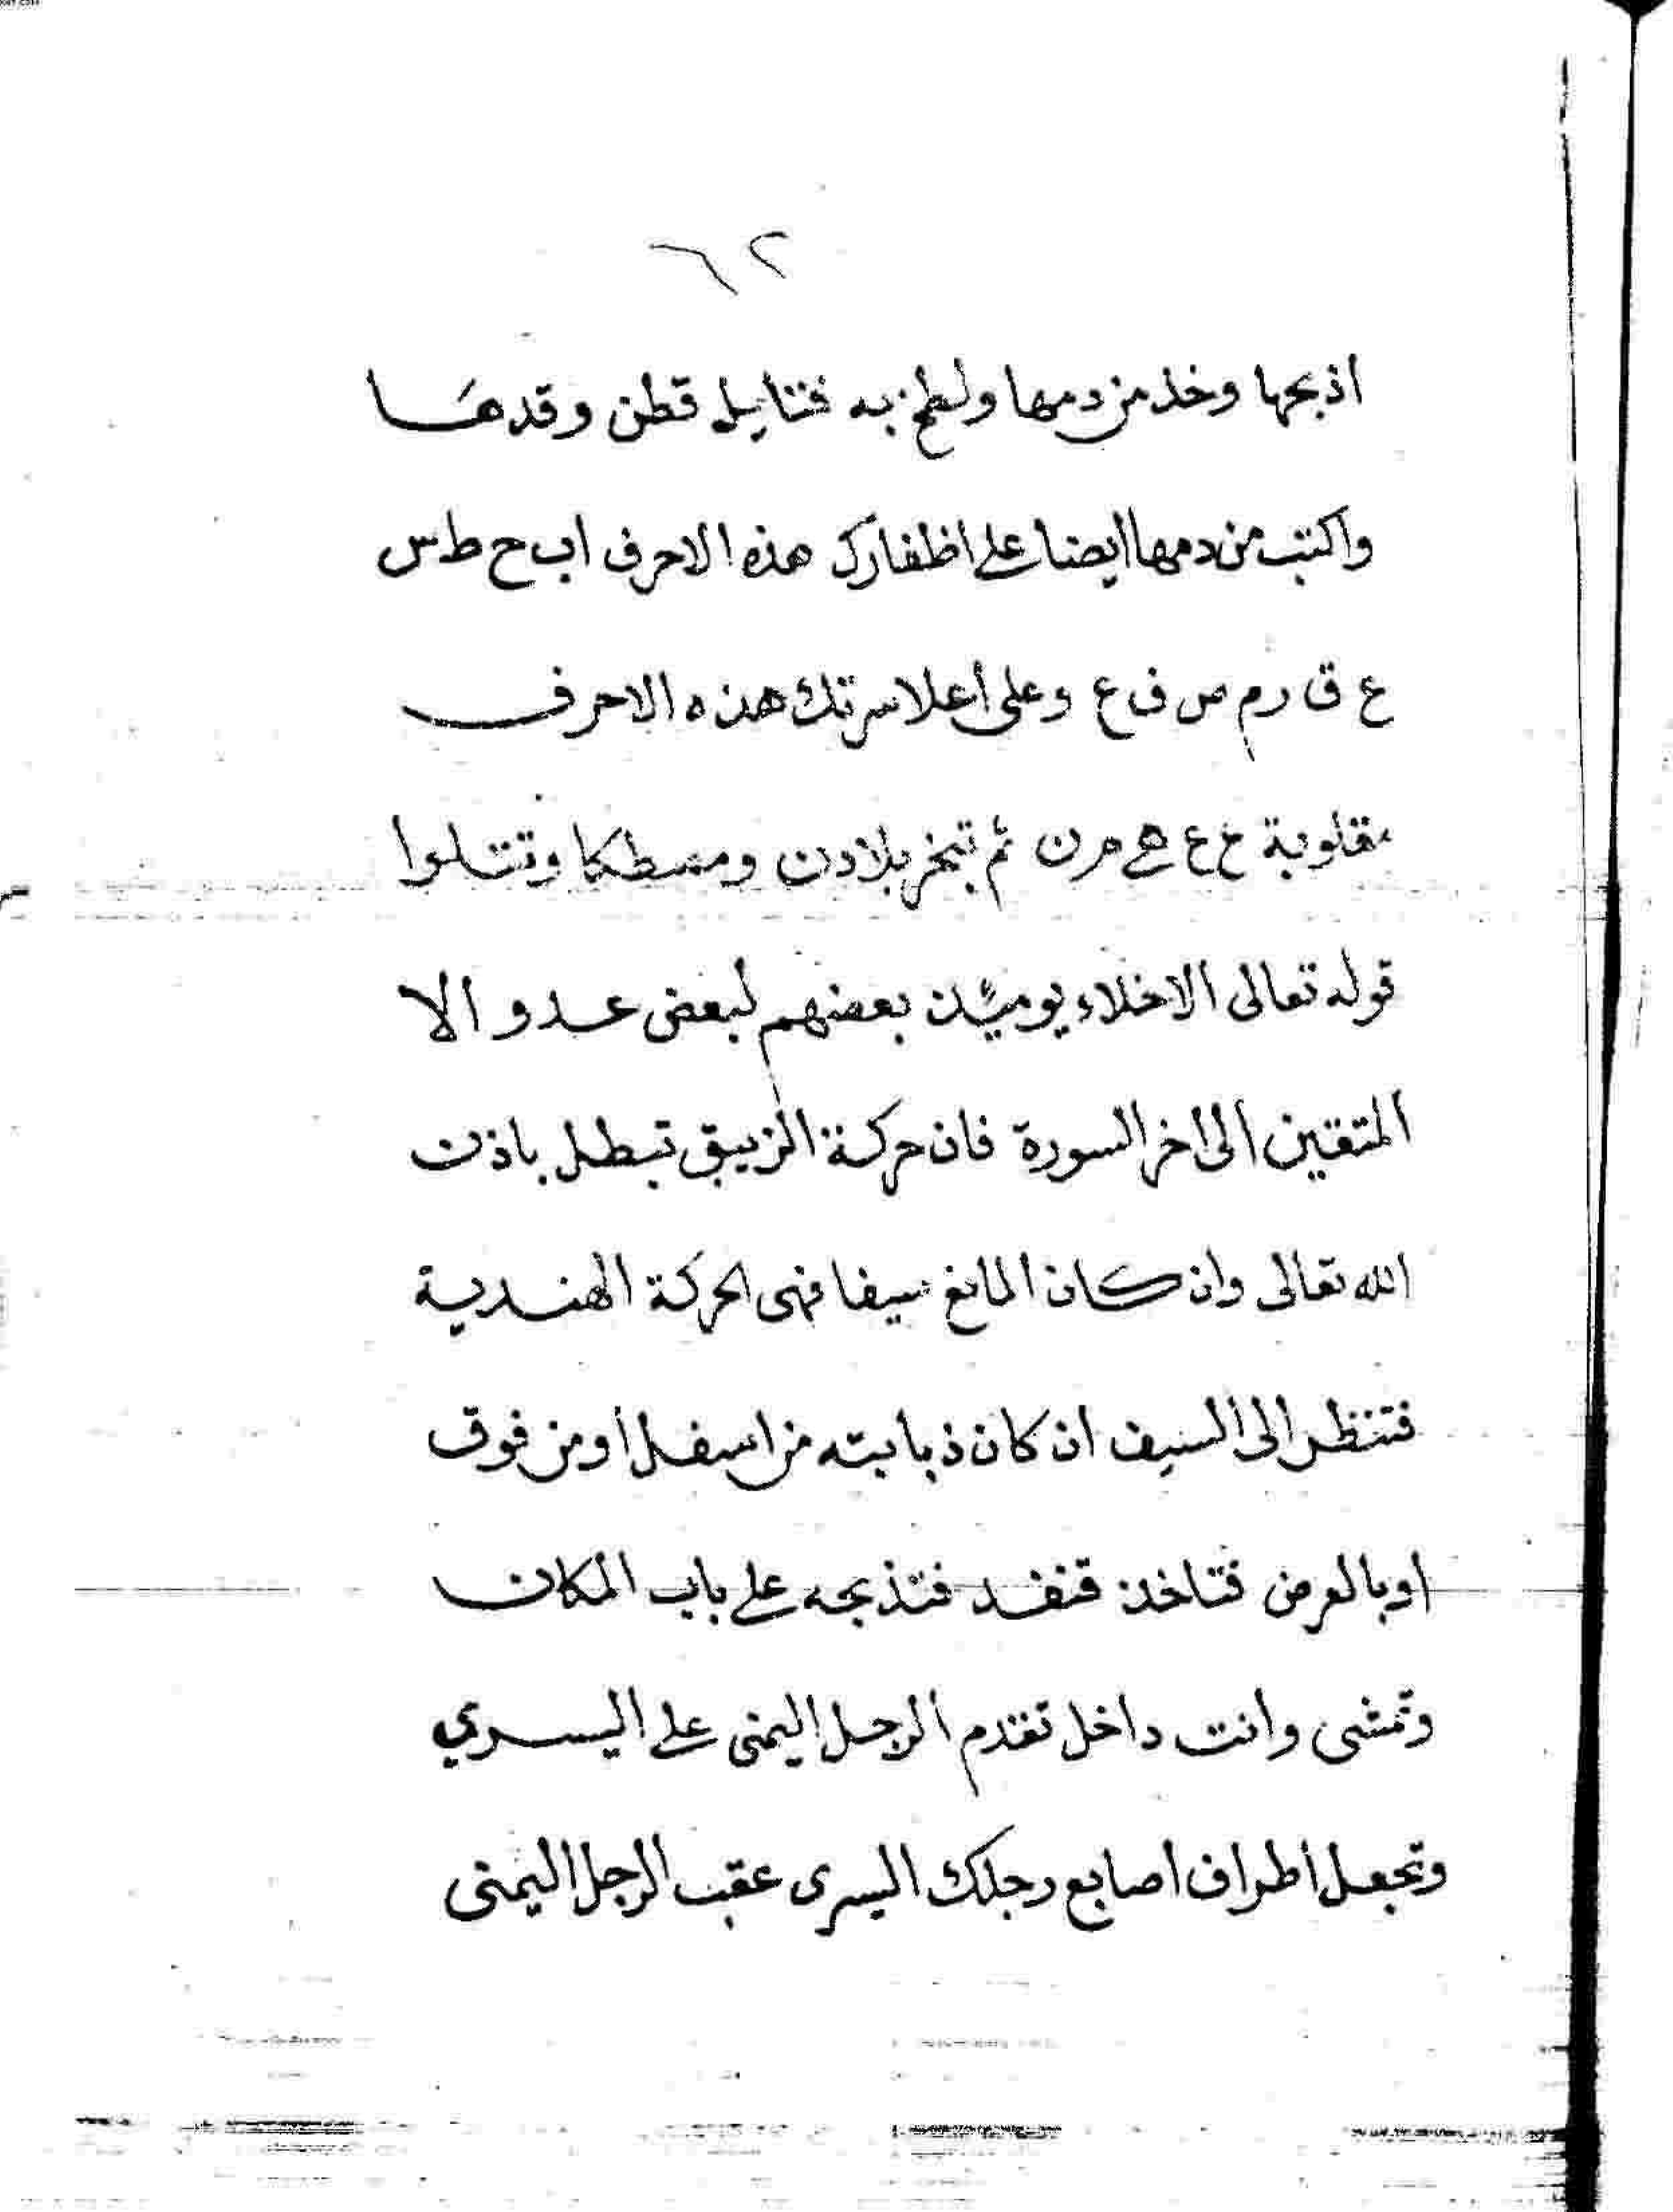 ٦٢
اذبحها وخذ من دمها ولطخ به فتايل قطن وقدها
واكتب من دمها ايضا على اظفارك هذه الاحرف اب ح ط س
ع ق ر م س ف ع وعلى أعلا سرتك هذه الاحرف
مقلوبة خ ع هـ م ر ن ثم تبخر بلادن ومسطكا وتتلوا
قوله تعالى الاخلاء يوميئذ بعضهم لبعض عدو الا
المتقين الى اخر السورة فان حركة الزيبق تبطل باذن
الله تعالى وان كان المانع سيفا فهى الحركة الهندية
فتنظر الى السيف ان كان ذبابته من اسفل او من فوق
او بالعرض فتاخذ قنفد فتذبحه على باب المكان
وتمشى وانت داخل تقدم الرجل اليمنى على اليسري
وتجعل اطراف اصابع رجلك اليسرى عقب الرجل اليمنى